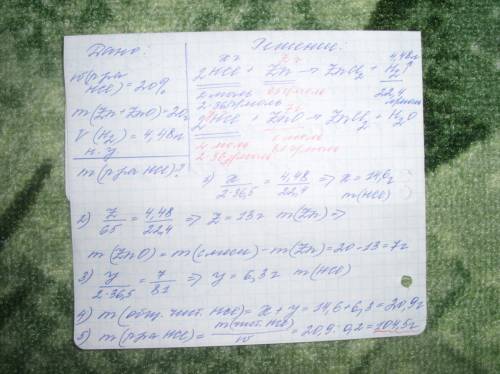 Дано:
w(р-ра
HCl)=20%
m(Zn+ZnO)-20г
V(H₂)=4,48л
н.у
m(р-ра HCl)?
Решение:
xг zг 4,48л
2HCl + Zn → ZnCl₂ + H₂↑
2 моль 22,4
2·36,5г/моль
yг 7г
2HCl + ZnO → ZnCl₂ + H₂O
2 моль 1 моль
2·36,5г/моль 81г/моль
1) x/2·36,5 = 4,48/22,4 ⇒ x=14,6г
m(HCl)
2) z/65 = 4,48/22,4 ⇒ z=13г m(Zn) ⇒
m(ZnO)=m(смеси)-m(Zn)=20-13=7г
3) y/2·36,5 = 7/81 ⇒ y=6,3г m(HCl)
4) m(общ. чист. HCl)=x+y=14,6+6,3=20,9г
5) m(р-ра HCl)= m(чист. HCl)/w =20,9:0,2=104,5г